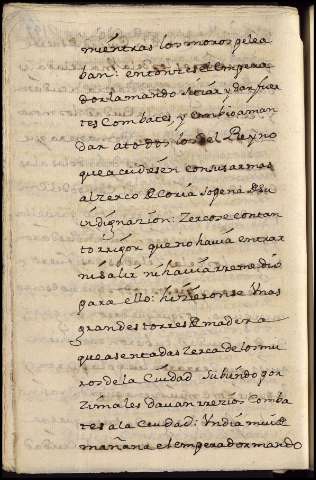 mientras los moros pelea
ban: entonces el empera
dor la mando sitiar y dar fuer
tes Combates, y embio a man
dar a todos los del Reyno
que acudiesen con sus armas
al zerco de Coria sopena de su
indignazion: Zercose con tan
to rrigor que no havia entrar
ni salir ni havia rremedio
para ello: hizieronse Unas
grandes torres de madera
que asentadas Zerca de los mu
ros de la Ciudad subindo por
Zima les davan rrezios Comba
tes a la Ciudad: Un dia mui de
mañana el emperador mando